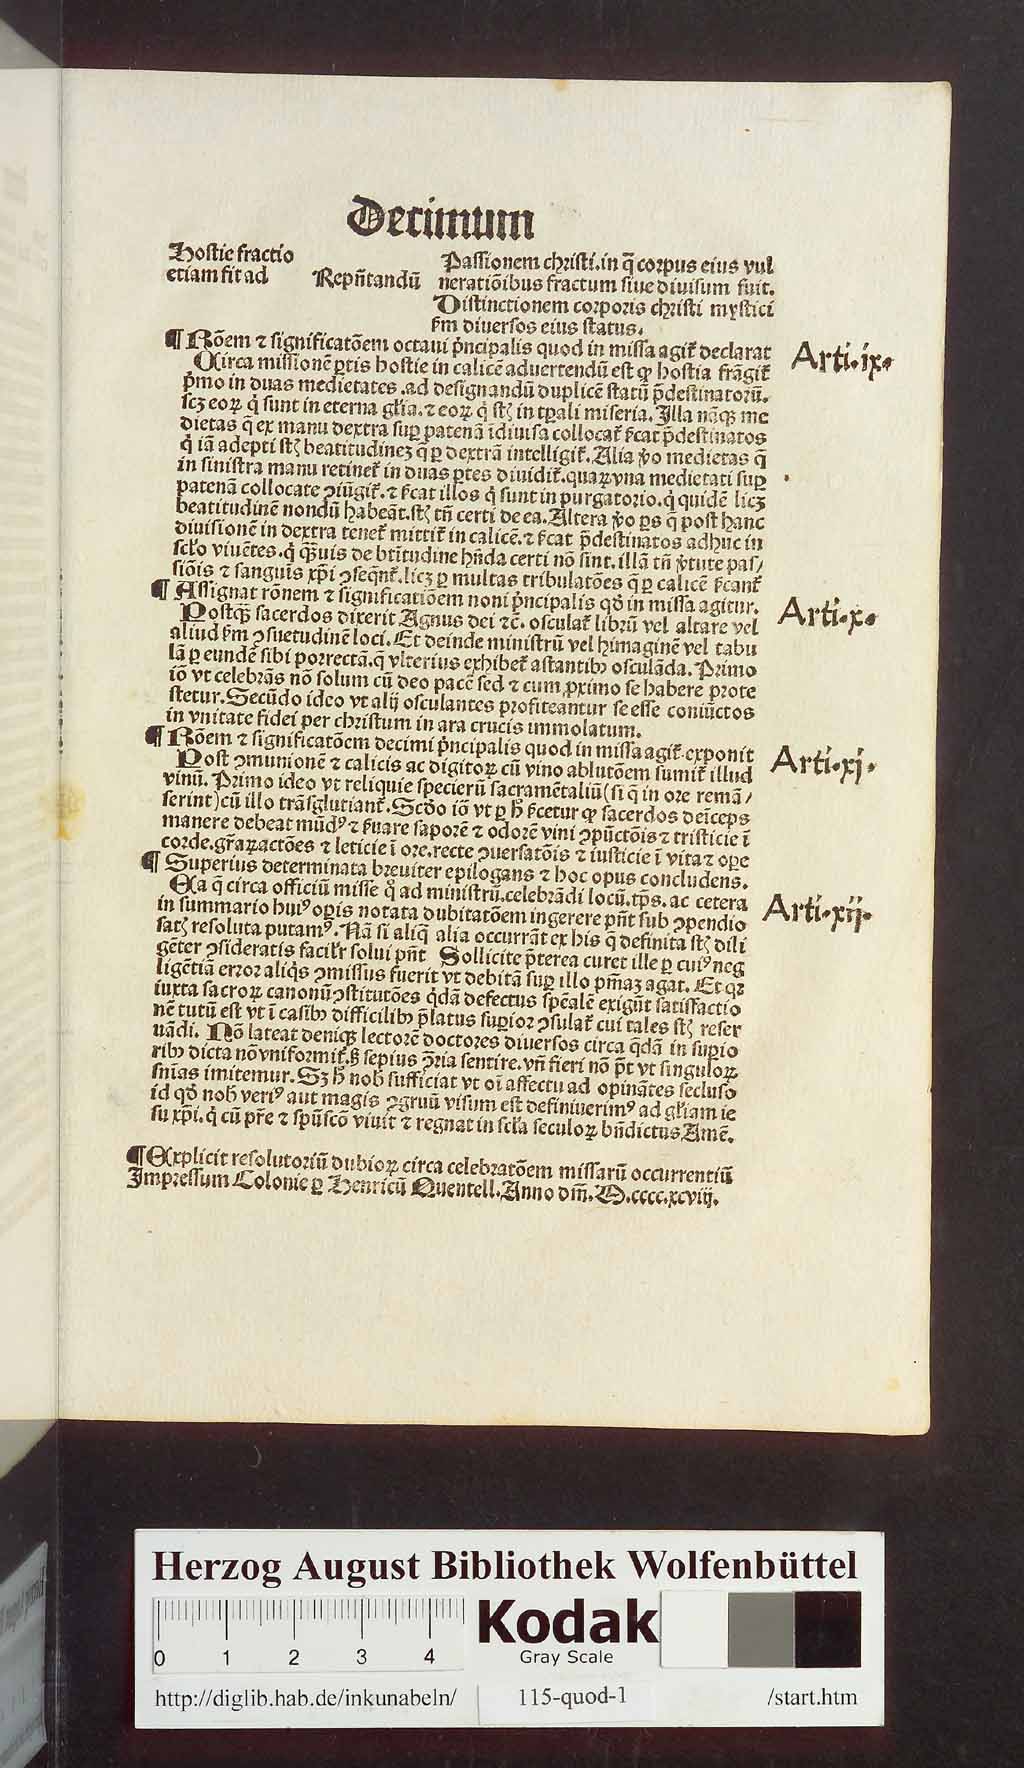 Decimum
Hostie fractio
etiam fit ad
Repn̄tandū
Passionem christi.in q̄ corpus eius vul
neratiōibus fractum siue diuisum fuit.
Distinctionem corporis christi mystici
fm diuersos eius status.
¶ Rōem ⁊ significatōem octaui p̄ncipalis quod in missa agit̄ declarat
Arti.ix.
Circa missionē ꝑtis hostie in calicē aduertendū est ꝙ hostia frāgit̄
p̄mo in duas medietates.ad designandū duplicē statū p̄destinatorū.
scꝫ eoꝝ q̇ sunt in eterna gl̄ia.⁊ eoꝝ q̇ st̄ in tꝑali miseria.Illa nāqꝫ me
dietas q̄ ex manu dextra suꝑ patenā īdiuisa collocat̄ s̄cat p̄destinatos
q̇ iā adepti st̄ beatitudinez q̄ ꝑ dextrā intelligit̄.Alia v̄o medietas q̄
in sinistra manu retinet̄ in duas ꝑtes diuidit̄.quaꝝ vna medietati suꝑ
patenā collocate ꝯiūgit̄.⁊ s̄cat illos q̇ sunt in purgatorio.q̇ quidē licꝫ
beatitudinē nondū habeāt.st̄ tn̄ certi de ea.Altera v̄o ꝑs q̄ post hanc
diuisionē in dextra tenet̄ mittit̄ in calicē.⁊ s̄cat p̄destinatos adhuc in
sc̄lo viuētes.q̇ qꝫuis de btītudine hn̄da certi nō sint.illā tn̄ v̄tute pas/
siōis ⁊ sanguīs xp̄i ꝯseqn̄t̄.licꝫ ꝑ multas tribulatōes q̄ ꝑ calicē s̄cant̄
¶ Assignat rōnem ⁊ significatiōem noni p̄ncipalis qd̄ in missa agitur.
Arti.x.
Postqꝫ sacerdos dixerit Agnus dei ⁊c̄. osculat̄ librū vel altare vel
aliud s̄m ꝯsuetudinē loci. Et deinde ministrū vel himaginē vel tabu
lā ꝑ eundē sibi porrectā.q̄ vlterius exhibet̄ astantibꝰ osculāda. Primo
iō vt celebrās nō solum cū deo pacē sed ⁊ cum ꝓximo se habere prote
stetur.Secūdo ideo vt alij osculantes profiteantur se esse coniūctos
in vnitate fidei per christum in ara crucis immolatum.
¶ Rōem ⁊ significatōem decimi p̄ncipalis quod in missa agit̄ exponit
Arti.xj.
Post ꝯmunionē ⁊ calicis ac digitoꝝ cū vino ablutōem sumit̄ illud
vinū. Primo ideo vt reliquie specierū sacramētaliū(si q̄ in ore remā/
serint)cū illo trāsglutiant̄.Scd̄o iō vt ꝑ h̄ s̄cetur ꝙ sacerdos deīceps
manere debeat mūdꝰ ⁊ s̄uare saporē ⁊ odorē vini ꝯpūctōis ⁊ tristicie ī
corde.gr̄aꝝactōes ⁊ leticie ī ore.recte ꝯuersatōis ⁊ iusticie ī vita ⁊ oꝑe
¶ Superius determinata breuiter epilogans ⁊ hoc opus concludens.
Arti.xij.
Ea q̄ circa officiū missē q̇ ad ministrū.celebrādi locū.tꝑs. ac cetera
in summario huiꝰ oꝑis notata dubitatōem ingerere pn̄t sub ꝯpendio
sat̄ resoluta putamꝰ. Nā si aliq̄ alia occurrāt ex his q̄ definita st̄ dili
gēter ꝯsideratis facilr̄ solui pn̄t Sollicite p̄terea curet ille ꝑ cuiꝰ neg
ligētiā error aliq̇s ꝯmissus fuerit vt debitā suꝑ illo pn̄iaꝫ agat. Et qꝛ
iuxta sacroꝝ canonū ꝯstitutōes q̇dā defectus spēalē exigūt satisfactio
nē tutū est vt ī casibꝰ difficilibꝰ p̄latus suꝑior ꝯsulat̄ cui tales st̄ reser
uādi. Nō lateat deniqꝫ lectorē doctores diuersos circa q̄dā in suꝑio
ribꝰ dicta nō vniformit̄.sꝫ sepius ꝯ̄ria sentire.vn̄ fieri nō p̄t vt singuloꝝ
sn̄ias imitemur.Sꝫ h̄ nob̄ sufficiat vt oī affectu ad opinātes secluso
id qd̄ nob̄ veriꝰ aut magis ꝯgruū visum est definiuerimꝰ ad gl̄iam ie
su xp̄i.q̇ cū pr̄e ⁊ sp̄uscō viuit ⁊ regnat in sc̄la seculoꝝ bn̄dictus Amē.
¶ Explicit resolutoriū dubioꝝ circa celebratōem missarū occurrentiū
Impressum Colonie ꝑ Henricū Quentell.Anno dm̄.M.cccc.xcviij.
Herzog August Bibliothek Wolfenbüttel
0 1 2 3 4
Kodak
Gray Scale
http://diglib.hab.de/inkunabeln/ 115-quod-1 /start.htm